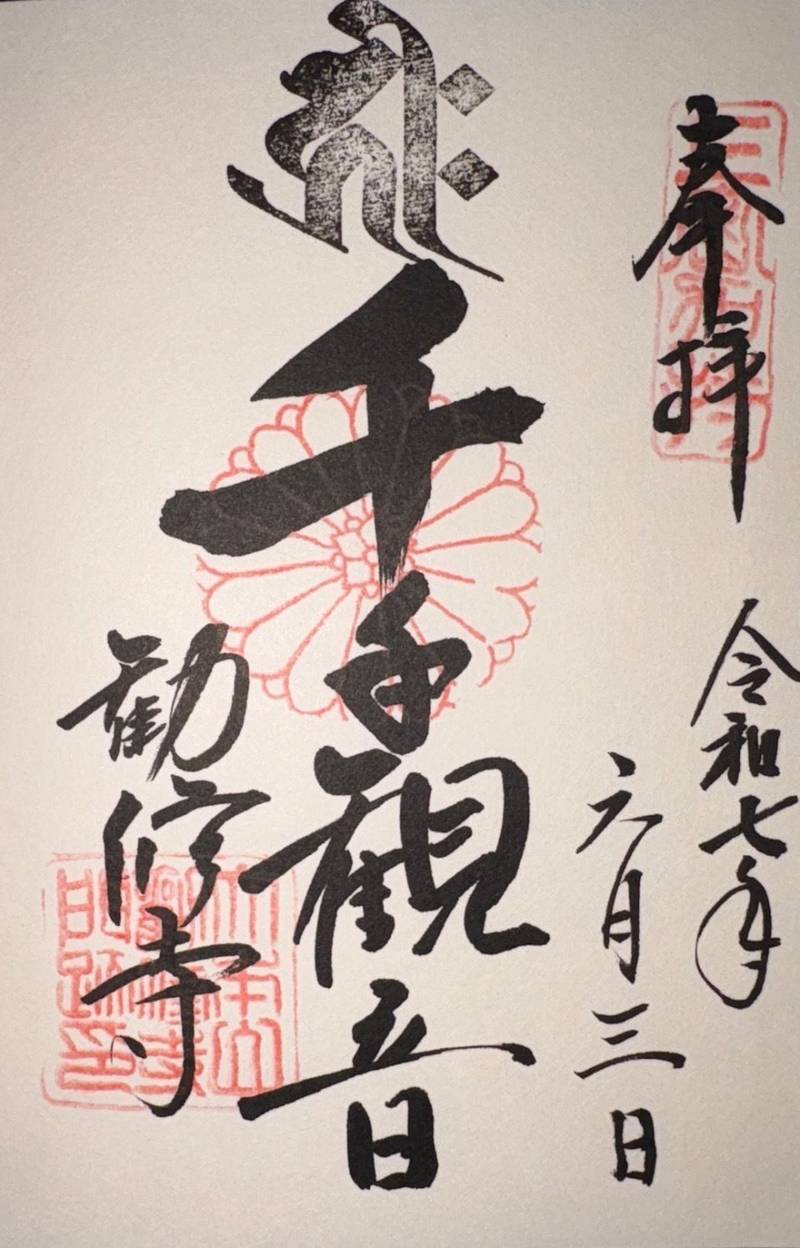 奉拝
令和七年
六月三日
千手観音
勧修寺